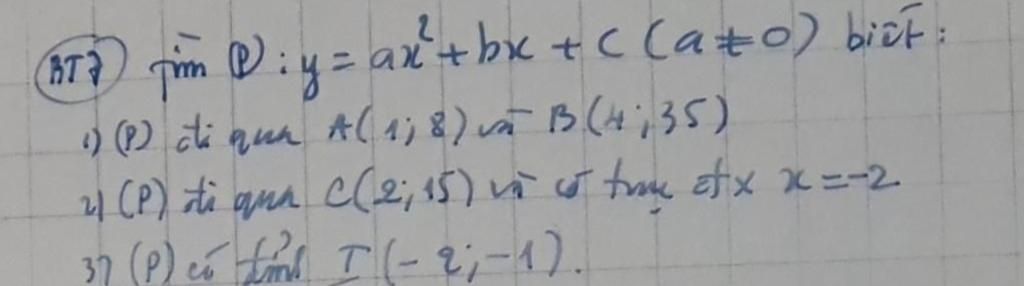 BT7 Tìm (P): y = ax² + bx + c (a ≠ 0) biết:
1) (P) đi qua A(1; 8) và B(4; 35)
2) (P) đi qua C(2; 15) và có trục đx x = -2
3) (P) có đỉnh I(-2; -1).